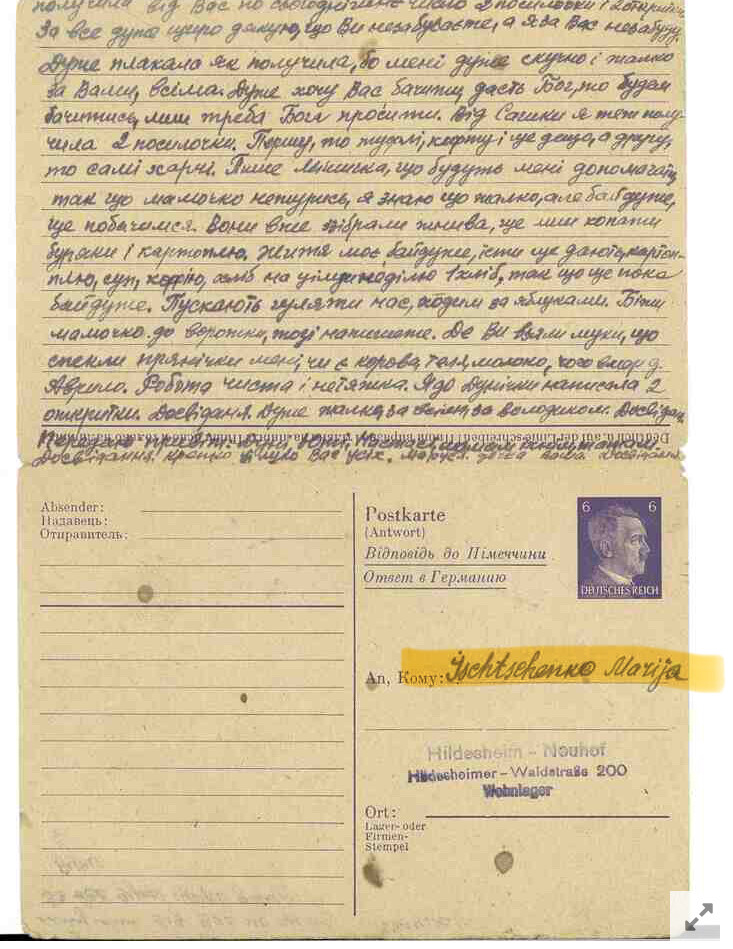 получила від Вас по сьогоднішнє число 2 посилочки і 2
За все дуже щиро дякую, що Ви незабуваєте, а я за Вас незабуду.
Дуже плакала як получила, бо мені дуже скучно і жалко
за Вами, всіма. Дуже хочу Вас бачити, дасть Бог, то будем
бачитись, лиш треба Бога просити. Від Сашки я теж полу-
чила 2 посилочки. Першу, то туфлі, кофту і ще дещо, а другу,
то самі харчі. Пише що будуть мені допомагати,
так що мамочко нетурись, я знаю що жалко, але байдуже,
ще побачимся. Вони вже зібрали жнива, ще лиш копати
буряки і картоплю. Життя моє байдуже, їсти ще дають, картоп-
лю, суп, хліб на цілу неділю 1 хліб, так що ще пока
байдуже. Пускають гуляти нас, ходим за яблуками. Біжи
мамочко до ворожки, тоді напишете. Де Ви взяли муки, що
спекли прянічки мені, чи є корова, теля, молоко, чого вмер д.
Аврило. Робота чиста і нетяжка. Я до написала 2
откритки. Досвіданя. Дуже жалко за за Володиком.
Досвідання. Вас усіх. Маруся ваша. Досвідання
Absender:
Надавець:
Отправитель:
Postkarte
(Antwort)
Відповідь до Німеччини
Ответ в Германию
6 6
DEUTSCHES REICH
An, Кому: Ischtschenko Marija
Hildesheim - Neuhof
Hildesheimer - Waldstraße 200
Wohnlager
Ort:
Lager- oder
Firmen-
Stempel